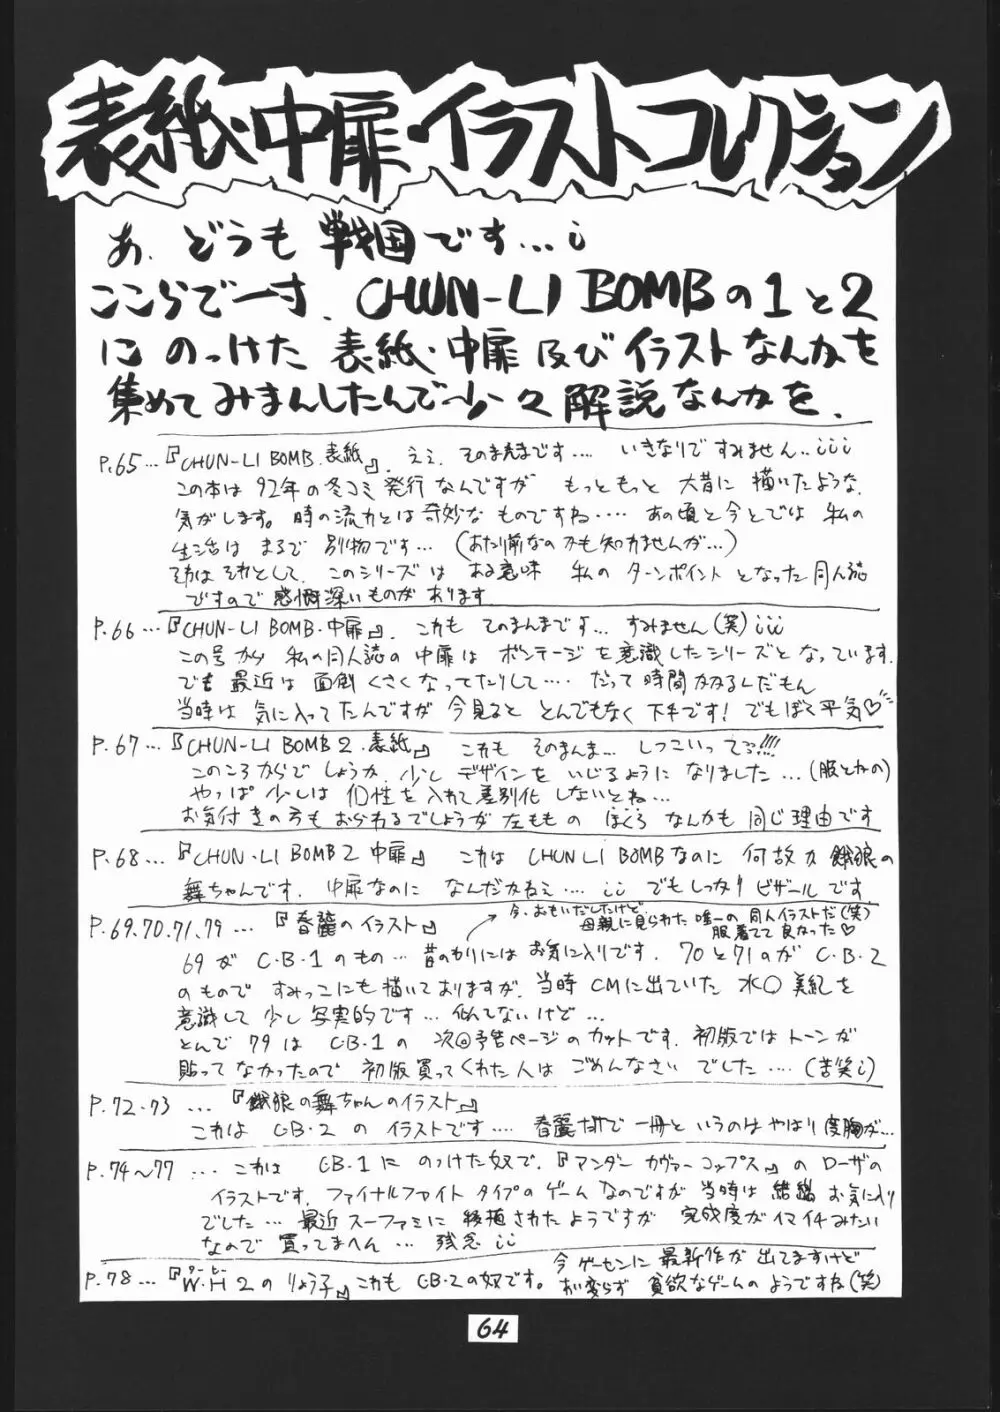 表紙・中扉・イラストコレクション
あ、どうも戦国です…¡
ここらで一寸、CHUN-LI BOMBの1と2
にのっけた表紙・中扉及びイラストなんかを
集めてみまんしたんで少々解説なんかを、
P.65…『CHUN-LI BOMB.表紙』、ええ、そのまんまです…. いきなりですみません..¡¡¡
この本は92年の冬コミ発行なんですが もっともっと大昔に描いたような、
気がします。時の流れとは奇妙なものですね‥‥ あの頃と今とでは 私の
生活は まるで 別物です… (あたり前なのかも知れませんが…)
それはそれとして、このシリーズは ある意味 私の ターンポイント となった同人誌
ですので感慨深いものがあります
P.66…『CHUN-LI BOMB・中扉』、これも そのまんまです… すみません(笑)¡¡¡
この号から 私の同人誌の中扉は ボンテージを意識したシリーズとなっています.
でも 最近は 面倒くさくなってたりして‥‥ だって時間かかるんだもん
当時は 気に入ってたんですが 今見ると とんでもなく下手です! でもぼく平気♡
P.67…『CHUN-LI BOMB 2.表紙』 これも そのまんま… しつこいってる!!!!
このころからでしょうか、少し デザインを いじるように なりました…(服とかの)
やっぱ 少しは 個性を入れて差別化 しないとね…
お気付きの方も おられるでしょうが 左ももの ほくろ なんかも 同じ理由です
P.68…『CHUN-LI BOMB 2 中扉』 これは CHUN LI BOMBなのに 何故か 餓狼の
舞ちゃんです. 中扉なのに なんだかねえ‥‥ ¡¡ でもしっかり ビザールです
P.69.70.71.79…『春麗のイラスト』
今、おもいだしたけど、
母親に見られた 唯一の 同人イラストだ(笑)
服着てて 良かった♡
69が C・B・1のもの… 昔のわりには お気に入りです. 70と71のが C・B・2
のもので すみっこにも描いておりますが、当時 CMに出ていた 水○美紀を
意識して 少し写実的です… 似てないけど…
とんで 79は C・B・1の 次回予告ページの カットです. 初版では トーンが
貼ってなかったので 初版買ってくれた人は ごめんなさい でした‥‥ (苦笑¡)
P.72.73 … 『餓狼の舞ちゃんのイラスト』
これは C・B・2の イラストです…. 春麗だけで 一冊と いうのは やはり 度胸が…
P.74〜77 … これは C・B・1に のっけた奴で、『アンダー カヴァー コップス』の ローザの
イラストです. ファイナルファイト タイプのゲーム なのですが 当時は 結構 お気に入り
でした… 最近 スーファミに 移植されたようですが 完成度がイマイチみたい
なので 買ってまへん… 残念 ¡¡
P.78…『W・H 2の りょう子』これも C・B・2の奴です. 今 ゲーセンに 最新作が 出てますけど
相変らず 貪欲なゲームの ようですね(笑)
64